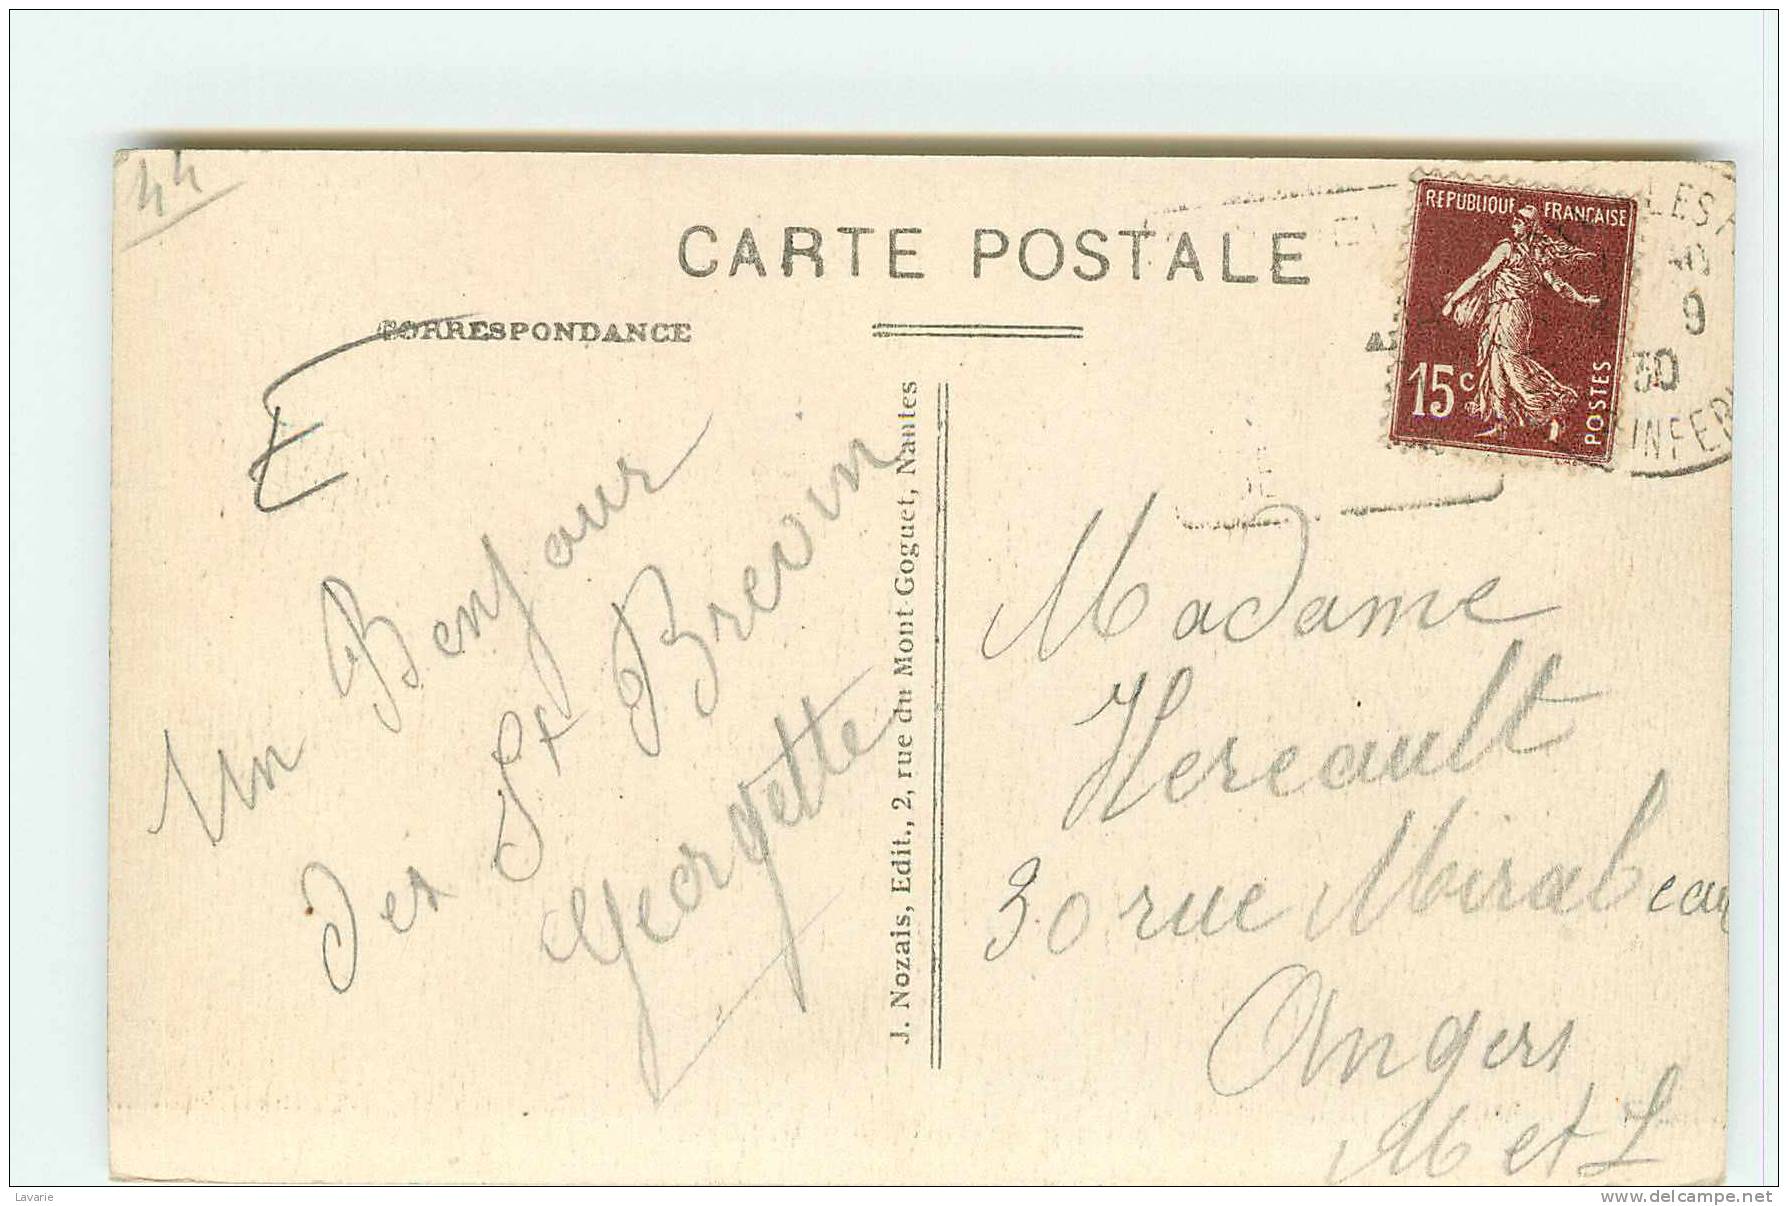 44
CARTE POSTALE
CORRESPONDANCE
REPUBLIQUE FRANCAISE
15c
POSTES
LES
9
30
INFER
E
Un Bonjour
des St Brevin
Georgette
J. Nozais, Edit., 2, rue du Mont-Goguet, Nantes
Madame
Hereault
30 rue Mirabeau
Angers
M et L
Lavarie
www.delcampe.net